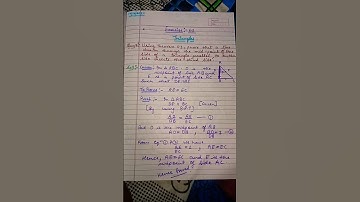 Exercise:- 6.2
Triangles
Ques 7. Using Theorem 6.1, prove that a line
drawn through the mid-point of one
side of a triangle parallel to another
side bisects the third side.
Given:- In △ABC, D is the
midpoint of side AB and
E is a point of side AC
Such that DE||BC
To Prove:- AE = EC
Proof:- In △ABC
DE || BC [Given]
[By using B.P.T]
AD/DB = AE/EC — ①
But D is the midpoint of AB
AD = DB
From Eqⁿ ① we have
AE/EC = 1, AE = EC
Hence, AE = EC and E is the
midpoint of side AC
Hence Proved